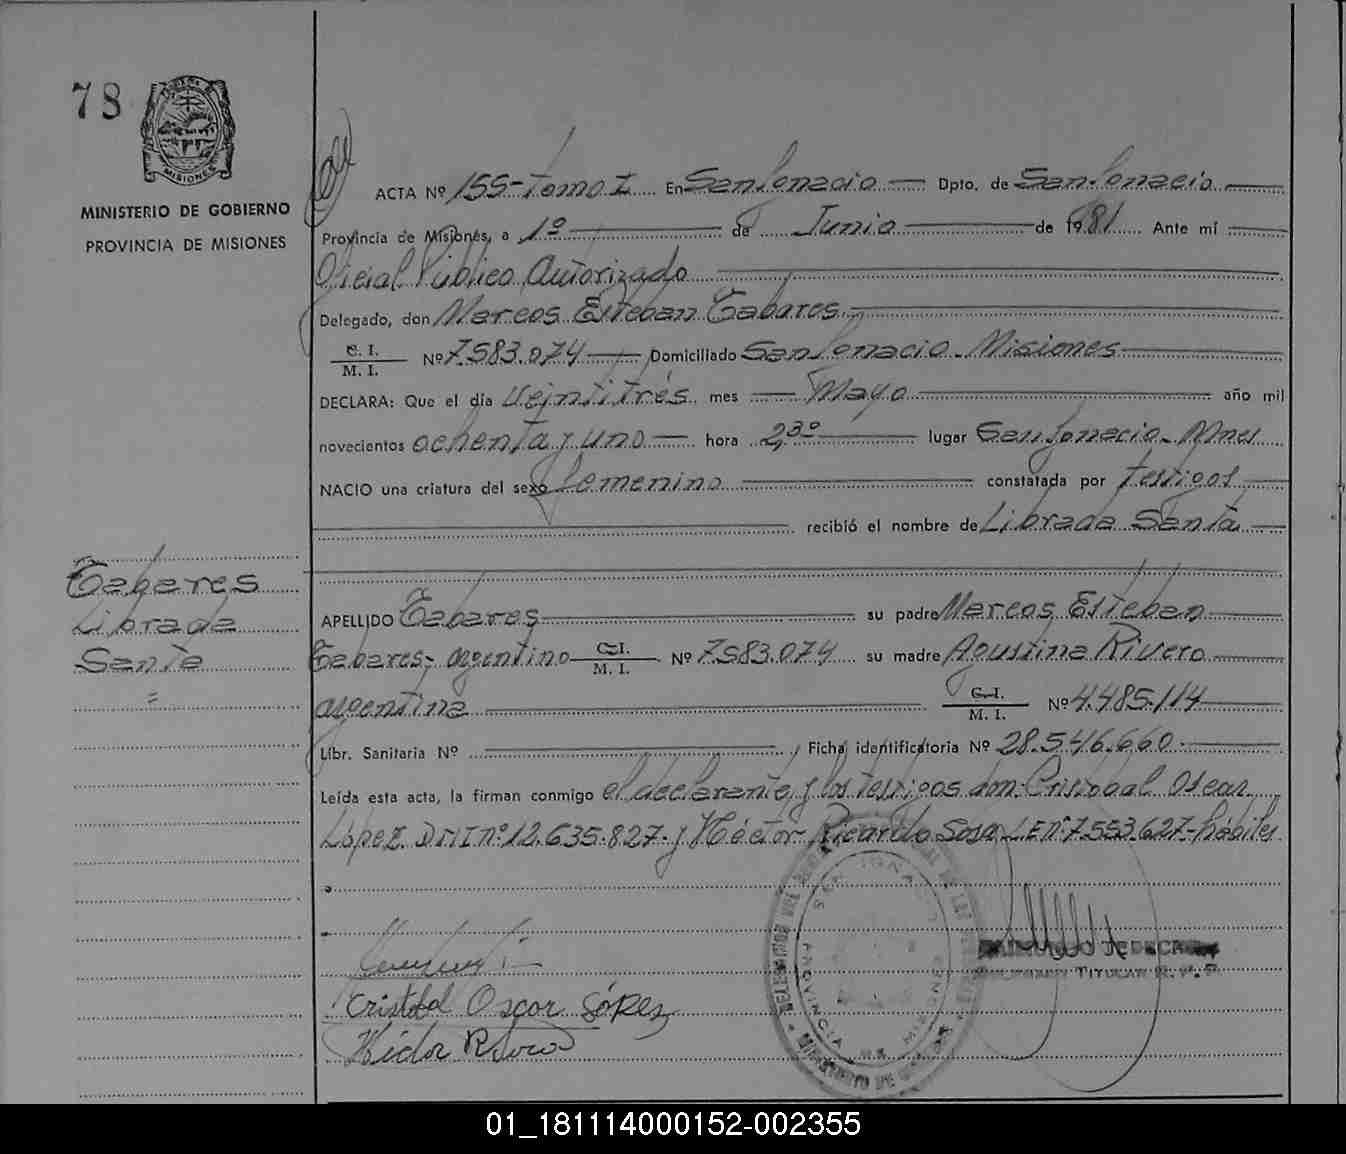 78
MISIONES
MINISTERIO DE GOBIERNO
PROVINCIA DE MISIONES
ACTA Nº 155-Tomo I En San Ignacio Dpto. de San Ignacio
Provincia de Misiones, a 1º de Junio de 1981 Ante mi
Oficial Público Autorizado
Delegado, don Marcos Esteban Tabares
C. I.
M. I. Nº 7.583.074 Domiciliado San Ignacio - Misiones
DECLARA: Que el día Veintitrés mes Mayo año mil
novecientos ochenta y uno hora 2,3º lugar San Ignacio - Mnes
NACIO una criatura del sexo femenino constatada por testigos
recibió el nombre de Librada Santa
Tabares
Librada
Santa
=
APELLIDO Tabares su padre Marcos Esteban
Tabares, argentino C.I.
M. I. Nº 7.583.074 su madre Agustina Rivero
argentina C.I.
M. I. Nº 4.485.114
Libr. Sanitaria Nº , Ficha identificatoria Nº 28.546.660
Leída esta acta, la firman conmigo el declarante y los testigos don: Cristobal Oscar
López DNI nº 12.635.827 y Héctor Ricardo Sosa L.E nº 7.553.627 - hábiles
Cristobal Oscar López
Héctor
SAN IGNACIO
PROVINCIA DE MISIONES
TITULAR R. P.
01_181114000152-002355